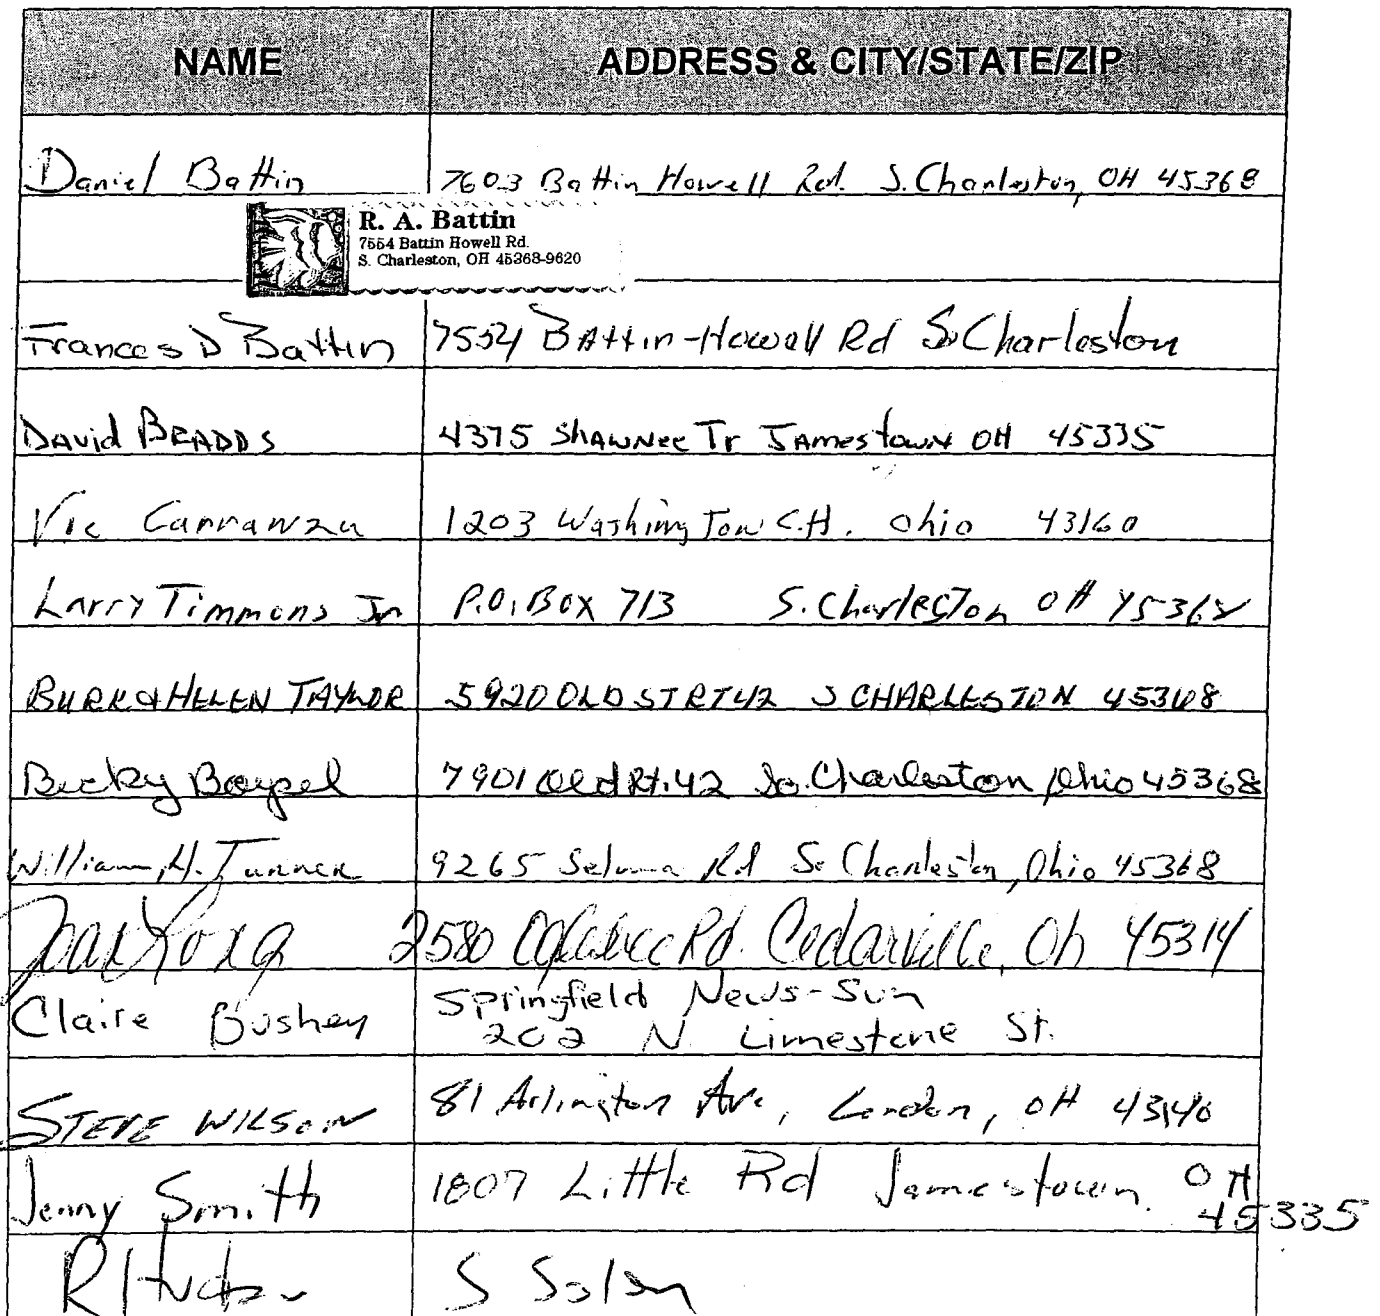 NAME ADDRESS & CITY/STATE/ZIP
Daniel Battin 7603 Battin Howell Rd. S. Charleston, OH 45368
R. A. Battin
7554 Battin Howell Rd.
S. Charleston, OH 45368-9620
Frances D Battin 7554 Battin-Howell Rd So Charleston
David BEADDS 4375 Shawnee Tr Jamestown OH 45335
Vic Carranza 1203 Washington C.H. Ohio 43160
Larry Timmons Jr P.O. Box 713 S. Charleston OH 45368
BURK & HELEN TAYLOR 5920 OLD ST RT 42 S CHARLESTON 45368
Becky 7901 Old Rt. 42 So. Charleston, Ohio 45368
William H. Turner 9265 Selma Rd So Charleston, Ohio 45368
2580 Rd. Cedarville, Oh 45314
Claire Bushey Springfield News-Sun
202 N. Limestone St.
STEVE WILSON 81 Arlington Ave, London, OH 43140
Jenny Smith 1807 Little Rd Jamestown. OH
45335
R S